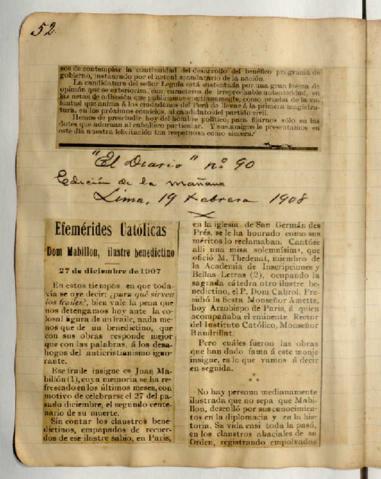 52
sos de contemplar la continuidad del desarrollo del benéfico programa de
gobierno, instaurado por el actual mandatario de la nación.
La candidatura del señor Leguía está sustentada por una gran fuerza de
opinión que se exterioriza, con caracteres de irreprochable autenticidad, en
las actas de adhesión que publicamos como prueba de la
que anima á los ciudadanos del Perú de llevar á la primera magistratura,
en los próximos comicios, al candidato del partido civil.
Hemos de prescindir hoy del hombre público, para fijarnos sólo en las
dotes que adornan al caballero particular. Y presentamos en
este día nuestra felicitación tan respetuosa como sincera.
"El Diario" nº 90
Edición de la mañana
Lima, 19 Febrero 1908
Efemérides Católicas
Dom Mabillon, ilustre benedictino
27 de diciembre de 1907
En estos tiempos en que todavía
se oye decir: ¿para qué sirven
los frailes?, bien vale la pena que
nos detengamos hoy ante la colosal
figura de un fraile, nada menos
que de un benedictino, que
con sus obras responde mejor
que con las palabras, á los desahogos
del anticristianismo ignorante.
Ese fraile insigne es Juan Mabillón
(1), cuya memoria se ha refrescado
en los últimos meses, con
motivo de celebrarse el 27 del pasado
diciembre, el segundo centenario
de su muerte.
Sin contar los claustros benedictinos,
empapados de recuerdos
de ese ilustre sabio, en París,
en la iglesia de San Germán des
Prés, se le ha honrado como sus
méritos lo reclamaban. Cantóse
allí una misa solemnísima, que
ofició M. Thedenat, miembro de
la Academia de Inscripciones y
Bellas Letras (2), ocupando la
sagrada cátedra otro ilustre benedictino,
el P. Dom Cabrol. Presidió
la fiesta Monseñor Amette,
hoy Arzobispo de París, á quien
acompañaba el eminente Rector
del Instituto Católico, Monseñor
Baudrillat.
Pero cuáles fueron las obras
que han dado fama á este monje
insigne, es lo que vamos á decir
en seguida.
No hay persona medianamente
ilustrada que no sepa que Mabillon,
descolló por sus conocimientos
en la diplomacia y en la historia.
Su vida casi toda la pasó,
en los claustros abaciales de su
Orden, registrando empolvados